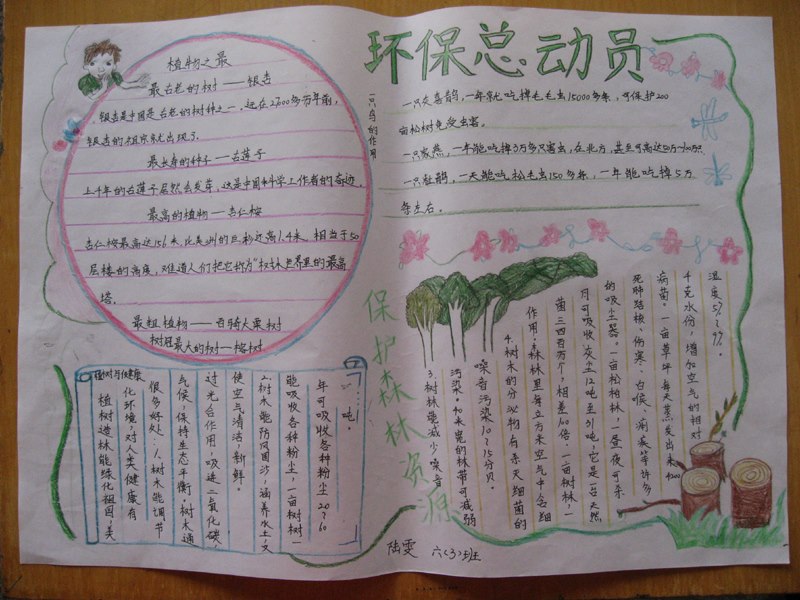 环保总动员
植物之最
最古老的树——银杏
银杏是中国最古老的树种之一,远在27000多万年前,
银杏的祖宗就出现了。
最长寿的种子——古莲子
上千年的古莲子居然会发芽,这是中国科学工作者的奇迹。
最高的植物——杏仁桉
杏仁桉最高达156米,比美洲的巨杉还高14米,相当于50
层楼的高度,难道人们把它称为"树木世界里的最高
塔。
最粗植物——百骑大栗树
树冠最大的树——榕树
一只鸟的作用
一只灰喜鹊,一年就吃掉毛毛虫15000多条,可保护200
亩松树免受虫害。
一只家燕,一年能吃掉3万多只害虫,在北方,甚至可高达50万~100万只
一只杜鹃,一天能吃松毛虫150多条,一年能吃掉5万
条左右。
保护森林资源
植树与健康
植树造林能绿化祖国,美
化环境,对人类健康有
很多好处:1.树木能调节
气候,保持生态平衡。树木通
过光合作用,吸进二氧化碳,
使空气清洁、新鲜。
2.树木能防风固沙,涵养水土,又
能吸收各种粉尘,一亩树林一
年可吸收各种粉尘20~60
吨。
3.树林能减少噪音
污染。40米宽的林带可减弱
噪音污染10~15分贝。
4.树木的分泌物有杀灭细菌的
作用,森林里每立方米空气中含细
菌三四百万个,相差100倍。一亩树林,一
月可吸收灰尘12吨至31吨,它是一台天然
的吸尘器。一亩松柏林,一昼夜可杀
死肺结核、伤寒、白喉、痢疾等许多
病菌。一亩草坪每天蒸发出来4200
千克水份,增加空气的相对
湿度5%~9%。
陆雯 六(3)班